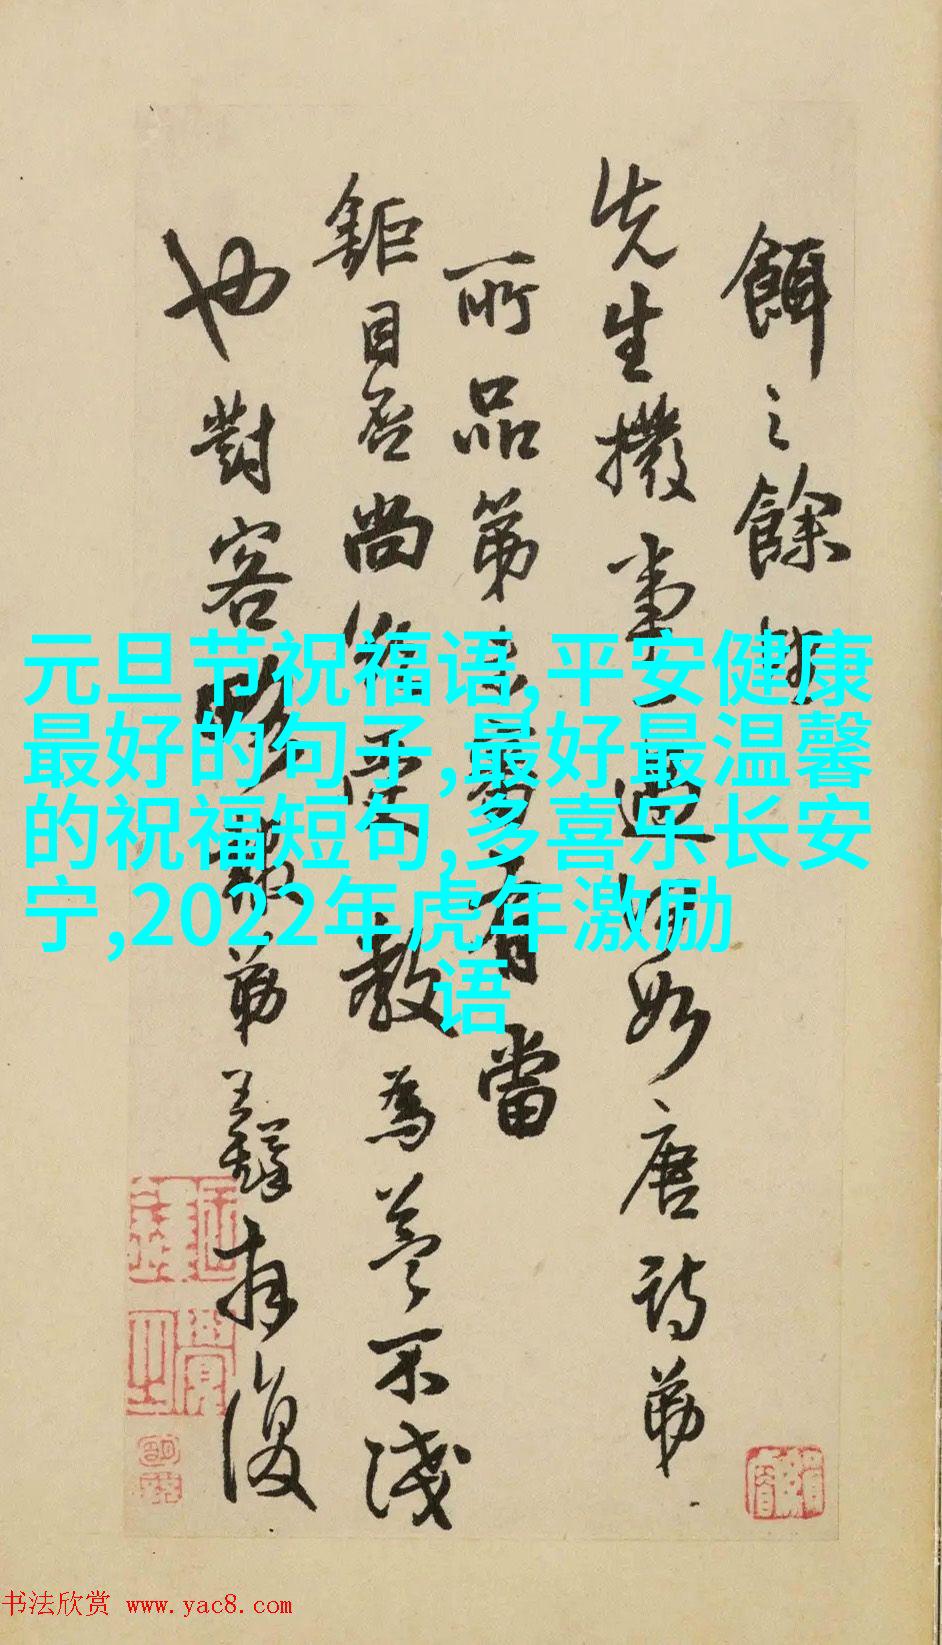 餌之餘
先生撥事 如唐詩弟
所品第 有當
鉅目否尚 教為 不淺
也對客 弟 再復
元旦节祝福语,平安健康
最好的句子,最好最温馨
的祝福短句,多喜乐长安
宁,2022年虎年激励
语
书法欣赏 www.yac8.com